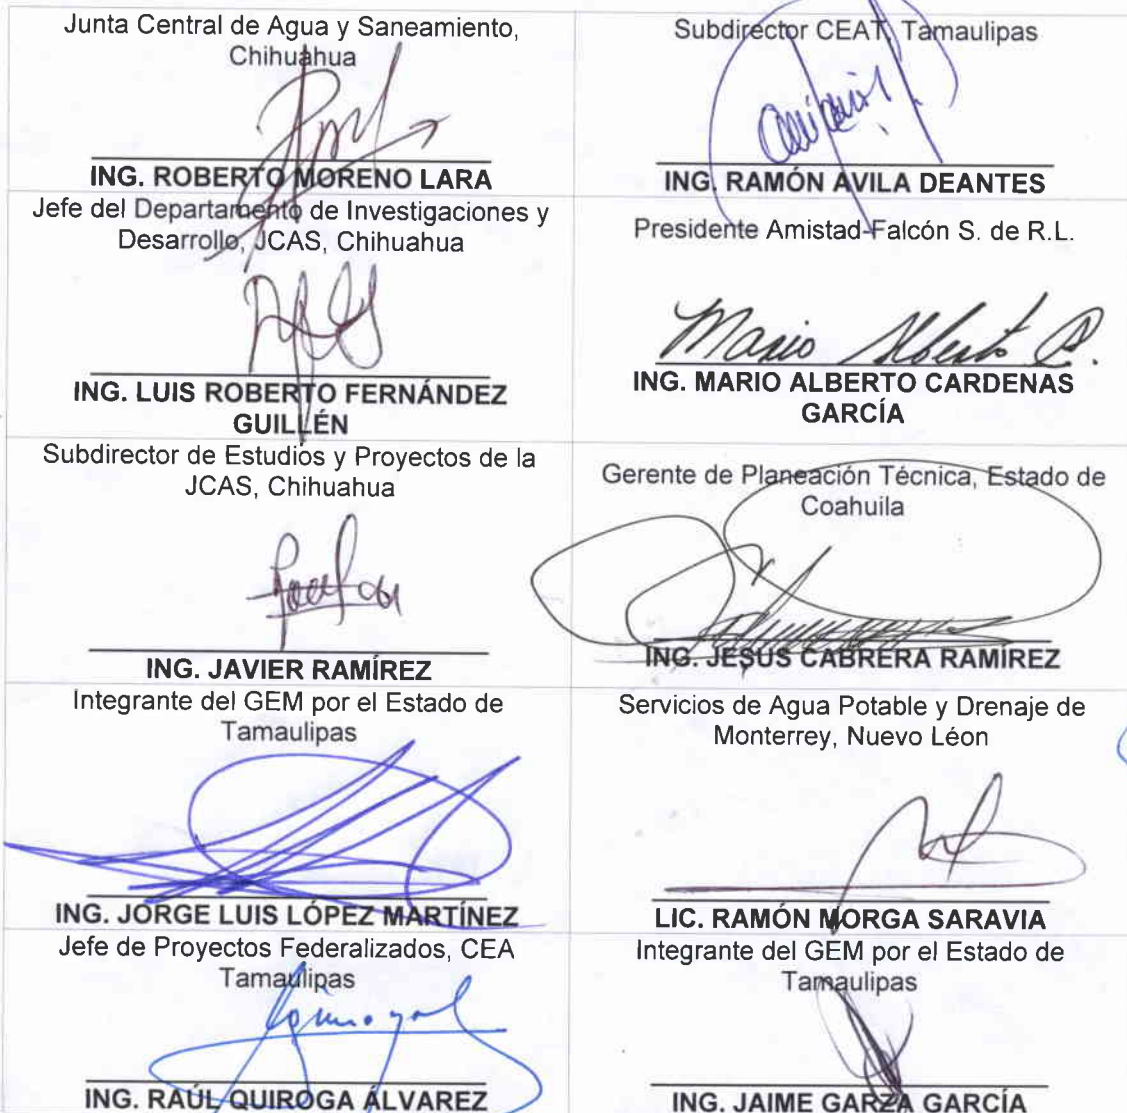 Junta Central de Agua y Saneamiento,
Chihuahua
ING. ROBERTO MORENO LARA
Jefe del Departamento de Investigaciones y
Desarrollo, JCAS, Chihuahua
ING. LUIS ROBERTO FERNÁNDEZ
GUILLÉN
Subdirector de Estudios y Proyectos de la
JCAS, Chihuahua
ING. JAVIER RAMÍREZ
Integrante del GEM por el Estado de
Tamaulipas
ING. JORGE LUIS LÓPEZ MARTÍNEZ
Jefe de Proyectos Federalizados, CEA
Tamaulipas
ING. RAÚL QUIROGA ÁLVAREZ
Subdirector CEAT, Tamaulipas
ING. RAMÓN AVILA DEANTES
Presidente Amistad-Falcón S. de R.L.
Mario Alberto C.
ING. MARIO ALBERTO CARDENAS
GARCÍA
Gerente de Planeación Técnica, Estado de
Coahuila
ING. JESUS CABRERA RAMIREZ
Servicios de Agua Potable y Drenaje de
Monterrey, Nuevo Léon
LIC. RAMÓN MORGA SARAVIA
Integrante del GEM por el Estado de
Tamaulipas
ING. JAIME GARZA GARCÍA